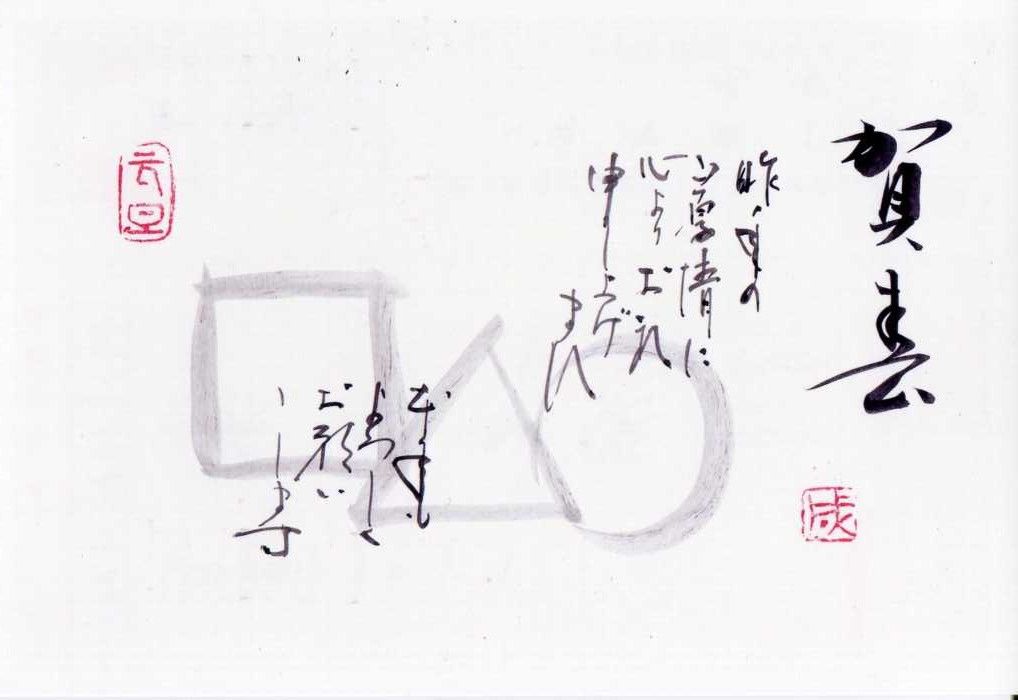 賀春
昨年の
ご厚情に
心より お礼
申し上げ
ます
本年も
よろしく
お願い
いたします
元旦